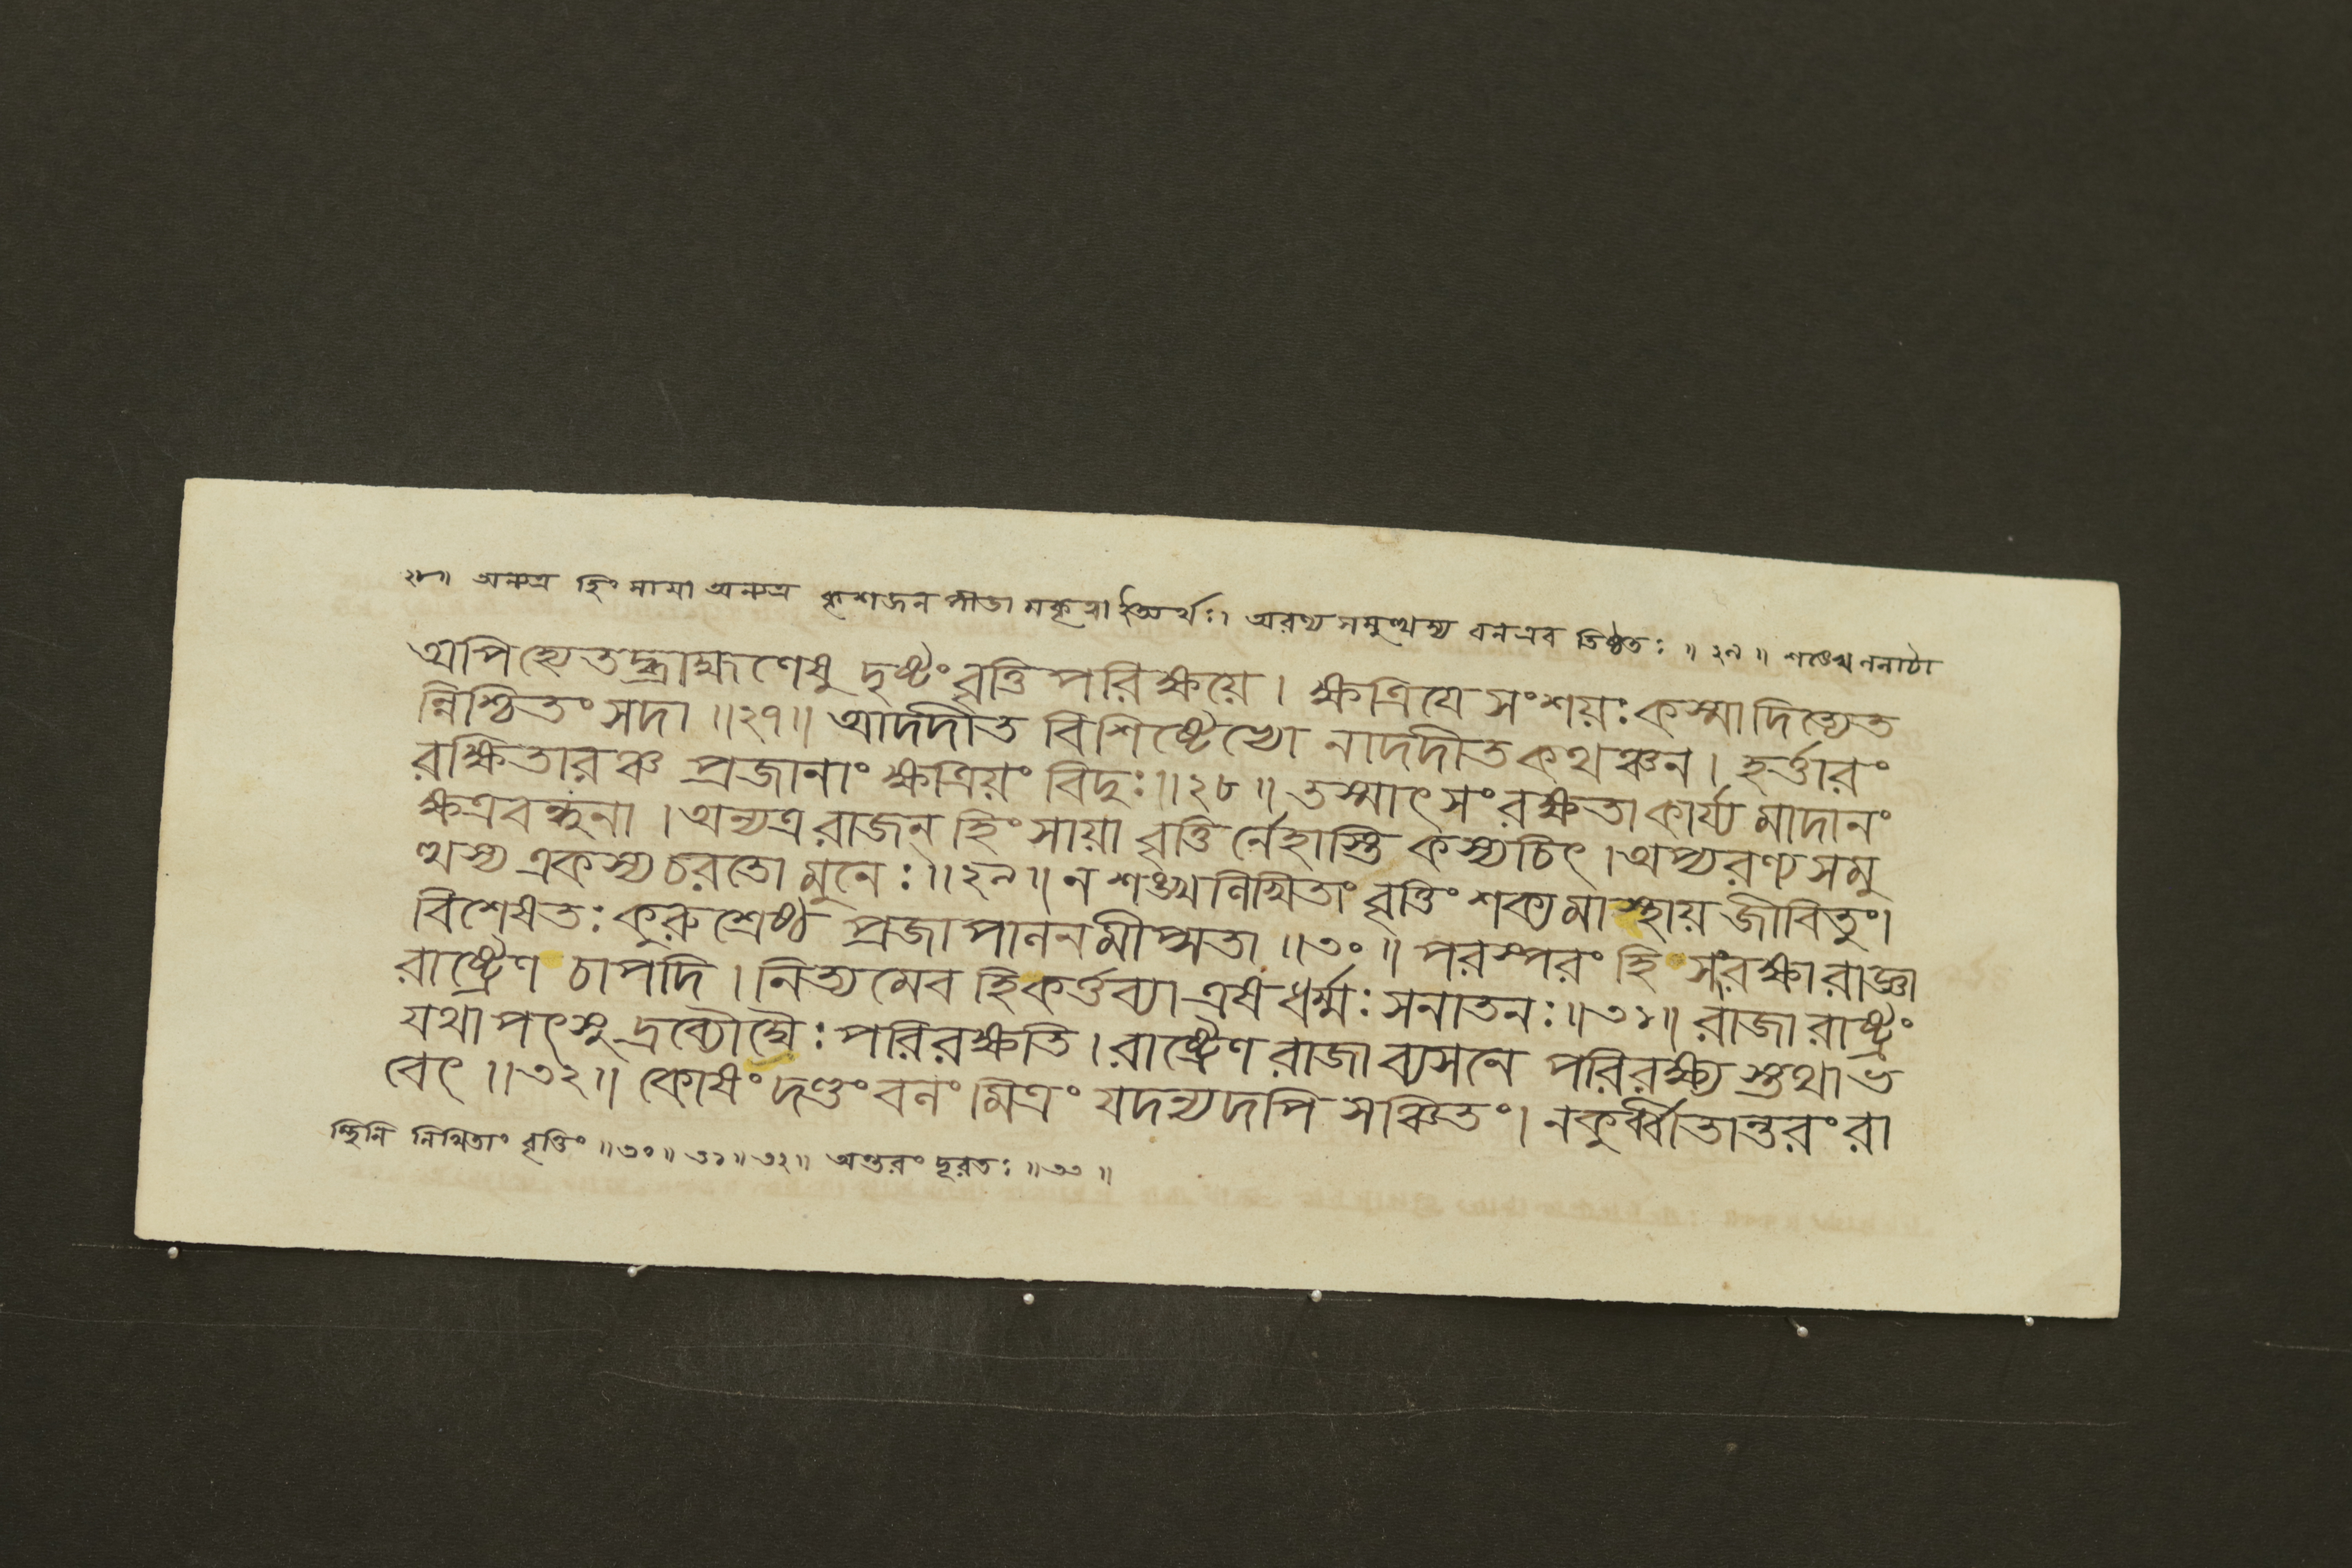 ২৮॥ অন্যত্র হিংসায়া অন্যত্র ক্লেশজন পীডা মকৃত্বা ইত্যর্থঃ। অরণ্য সমুত্থস্য বনএব তিষ্ঠতঃ ॥ ২৯ ॥ শঙ্খেললাটা
অপিহ্যেতদ্ব্রাহ্মণেষু দৃষ্টং বৃত্তি পরিক্ষয়ে। ক্ষত্রিয়ে সংশয়ঃ কস্মাদিত্যেত
ন্নিশ্চিতং সদা ॥২৭॥ আদদীত বিশিষ্টেভ্যো নাদদীত কথঞ্চন। হর্ত্তারং
রক্ষিতারঞ্চ প্রজানাং ক্ষত্রিয়ং বিদুঃ॥২৮॥ তস্মাৎসংরক্ষতা কার্য্য মাদানং
ক্ষত্রবন্ধুনা । অন্যত্র রাজন্ হিংসায়া বৃত্তি র্নেহাস্তি কস্যচিৎ । অপ্যরণ্য সমু
ত্থস্য একস্য চরতো মুনেঃ॥২৯॥ ন শঙ্খলিখিতাং বৃত্তিং শক্যমাস্থায় জীবিতুং।
বিশেষতঃ কুরুশ্রেষ্ঠ প্রজাপালনমীপ্সতা ॥৩০॥ পরস্পরং হি সংরক্ষা রাজ্ঞা
রাষ্ট্রেণ চাপদি । নিত্যমেব হি কর্ত্তব্যা এষ ধর্ম্মঃ সনাতনঃ॥৩১॥ রাজা রাষ্ট্রং
যথাপৎসু দ্রব্যৌঘৈঃ পরিরক্ষতি । রাষ্ট্রেণ রাজা ব্যসনে পরিরক্ষ্য স্তথা ভ
বেৎ ॥৩২॥ কোষং দণ্ডং বলং মিত্রং যদন্যদপি সঞ্চিতং। ন কুর্ব্বীতান্তরং রা
স্থিনি লিখিতাং বৃত্তিং ॥৩০॥ ৩১॥ ৩২॥ অন্তরং দূরতঃ ॥৩৩॥